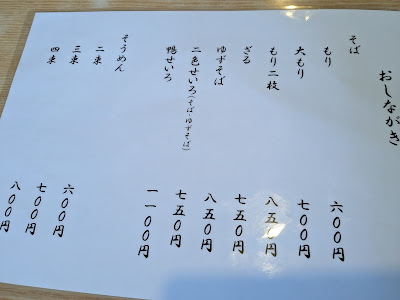 おしながき
そば
もり 六〇〇円
大もり 七〇〇円
もり二枚 八五〇円
ざる 七五〇円
ゆずそば 八五〇円
二色せいろ(そば・ゆずそば) 七五〇円
鴨せいろ 一一〇〇円
そうめん
二束 六〇〇円
三束 七〇〇円
四束 八〇〇円